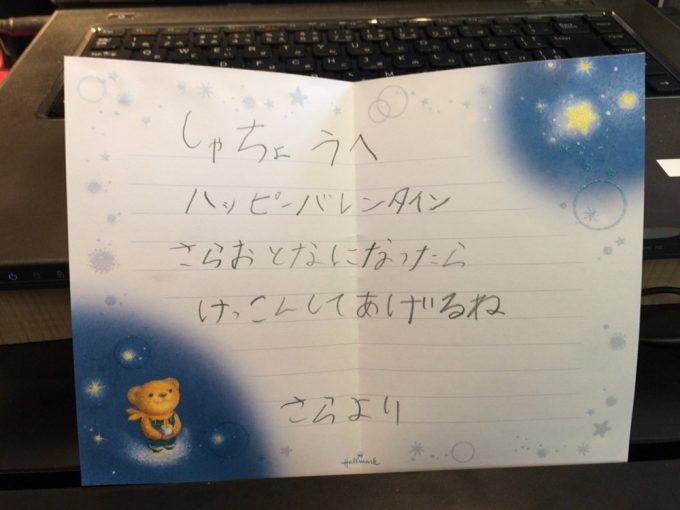 しゃちょうへ
ハッピーバレンタイン
さらおとなになったら
けっこんしてあげるね
さらより
Hallmark